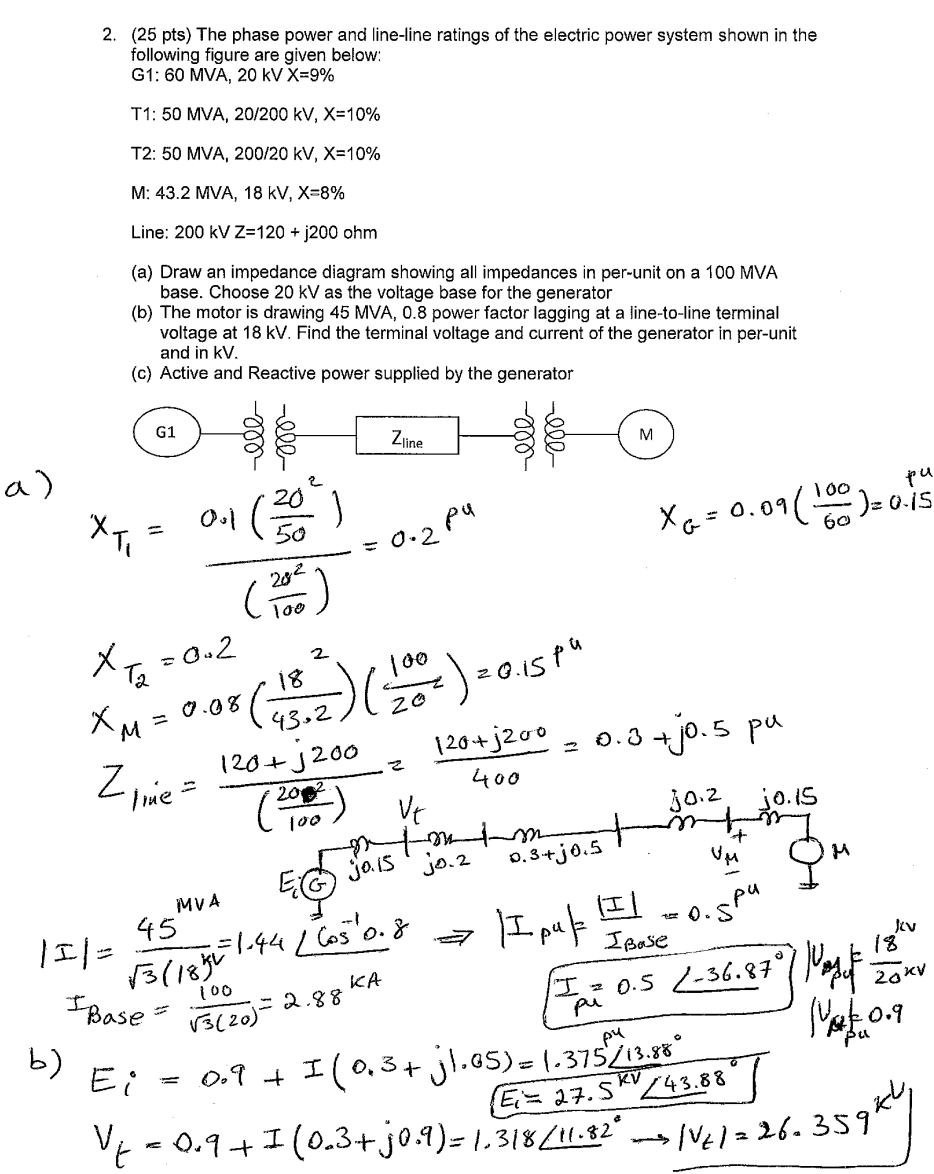 2. (25 pts) The phase power and line-line ratings of the electric power system shown in the
following figure are given below:
G1: 60 MVA, 20 kV X=9%
T1: 50 MVA, 20/200 kV, X=10%
T2: 50 MVA, 200/20 kV, X=10%
M: 43.2 MVA, 18 kV, X=8%
Line: 200 kV Z=120 + j200 ohm
(a) Draw an impedance diagram showing all impedances in per-unit on a 100 MVA
base. Choose 20 kV as the voltage base for the generator
(b) The motor is drawing 45 MVA, 0.8 power factor lagging at a line-to-line terminal
voltage at 18 kV. Find the terminal voltage and current of the generator in per-unit
and in kV.
(c) Active and Reactive power supplied by the generator
G1 Zline M
a)
X_T1 = 0.1 (20²/50) / (20²/100) = 0.2 pu
X_G = 0.09 (100/60) = 0.15 pu
X_T2 = 0.2
X_M = 0.08 (18²/43.2) (100/20²) = 0.15 pu
Z_line = 120 + j200 / (200²/100) = 120 + j200 / 400 = 0.3 + j0.5 pu
Ei G j0.15 Vt j0.2 0.3+j0.5 j0.2 + VM - j0.15 M
|I| = 45 MVA / √3(18) kV = 1.44 ∠Cos⁻¹0.8 ⇒ |I pu| = |I| / I Base = 0.5 pu
I Base = 100 / √3(20) = 2.88 KA
I pu = 0.5 ∠-36.87°
= 18 kV / 20 kV
= 0.9
b) Ei = 0.9 + I (0.3 + j1.05) = 1.375 pu ∠13.88°
Ei = 27.5 KV ∠43.88°
Vt = 0.9 + I (0.3 + j0.9) = 1.318 ∠11.82° → |Vt| = 26.359 kV